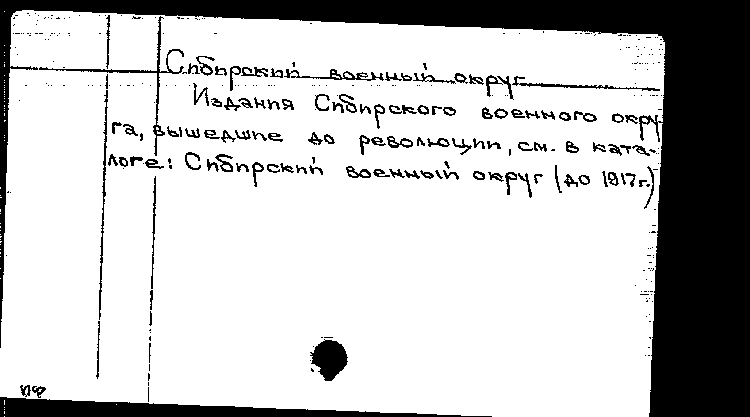 Сибирский военный округ
Издания Сибирского военного окру
га, вышедшие до революции, см. в ката-
логе: Сибирский военный округ (до 1917г.)